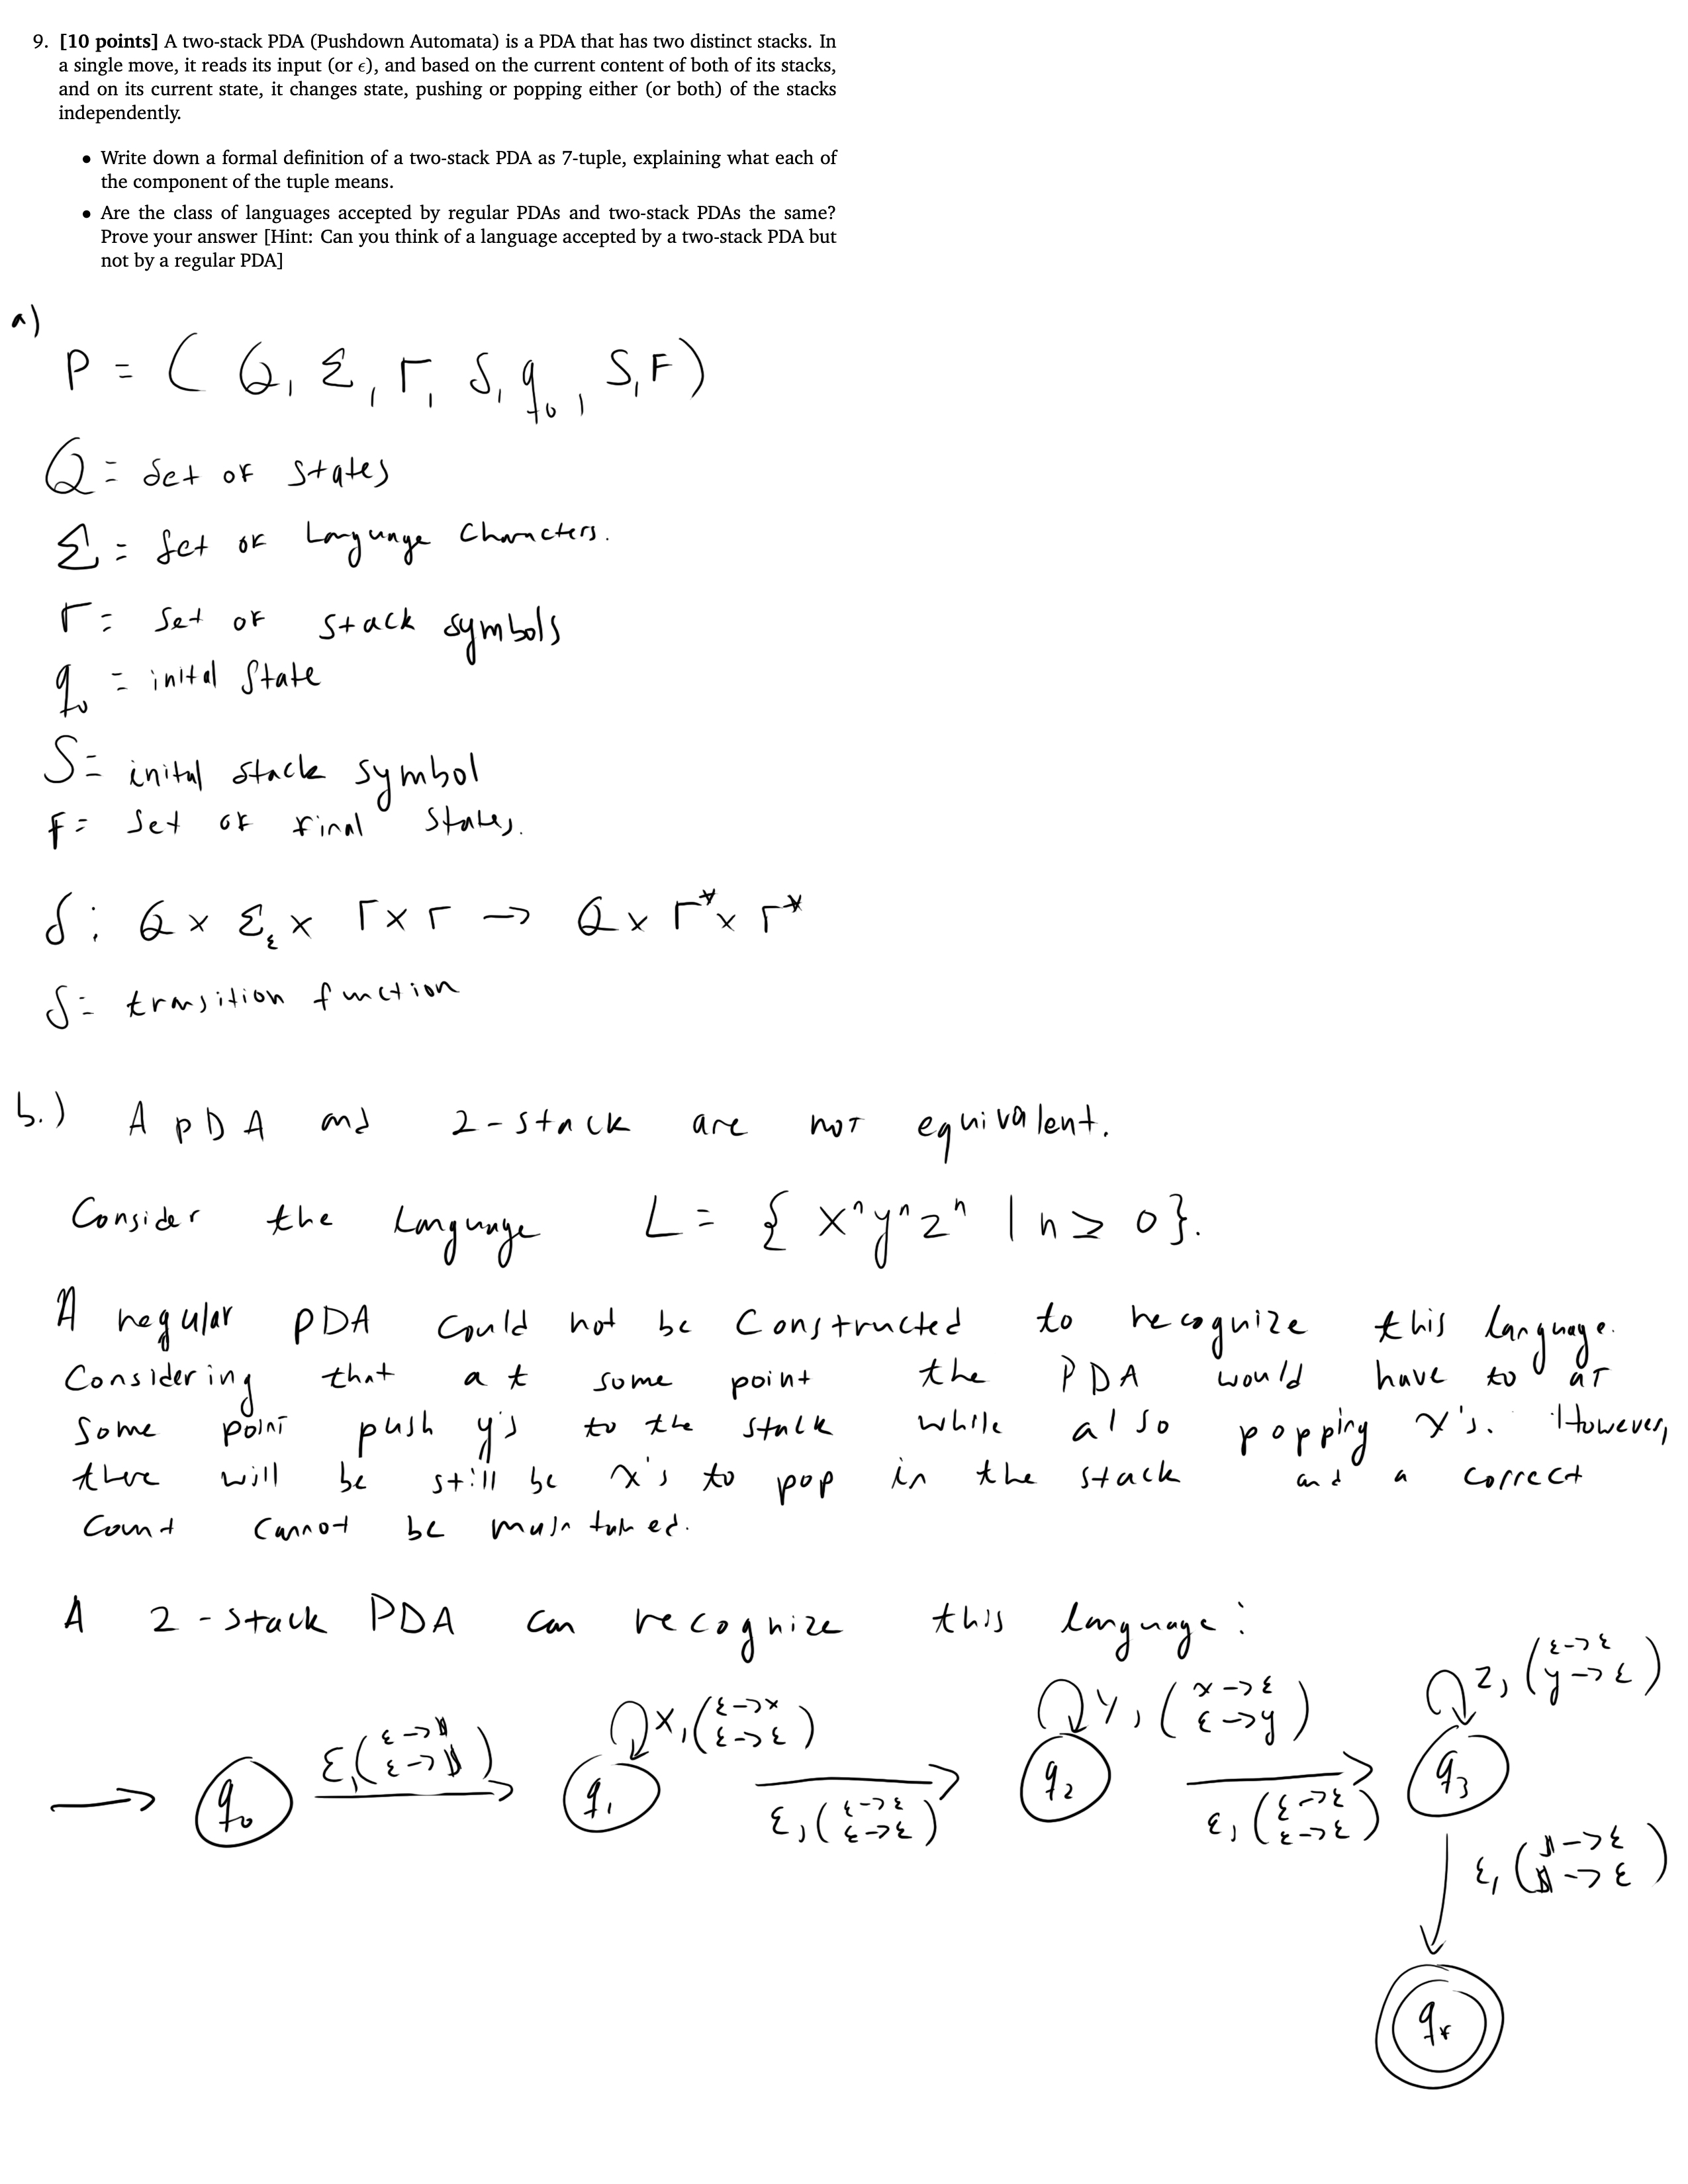 9. [10 points] A two-stack PDA (Pushdown Automata) is a PDA that has two distinct stacks. In
a single move, it reads its input (or ϵ), and based on the current content of both of its stacks,
and on its current state, it changes state, pushing or popping either (or both) of the stacks
independently.
• Write down a formal definition of a two-stack PDA as 7-tuple, explaining what each of
the component of the tuple means.
• Are the class of languages accepted by regular PDAs and two-stack PDAs the same?
Prove your answer [Hint: Can you think of a language accepted by a two-stack PDA but
not by a regular PDA]
a)
P = ( Q, Σ, Γ, δ, q₀, S, F)
Q = Set of states
Σ = Set of Language Characters.
Γ = Set of stack symbols
q₀ = inital State
S = inital stack symbol
F = Set of final states.
δ: Q × Σ_ε × Γ × Γ → Q × Γ* × Γ*
δ = transition function
b.) A PDA and 2-stack are not equivalent.
Consider the Language L = { xⁿyⁿzⁿ | n ≥ 0}.
A regular PDA could not be constructed to recognize this language.
Considering that at some point the PDA would have to at
some point push y's to the stack while also popping x's. However,
there will be still be x's to pop in the stack and a correct
count cannot be maintained.
A 2-stack PDA can recognize this language:
ε→ε
z, (y→ε)
x→ε
y, (ε→y)
ε→x
x, (ε→ε)
ε→$
ε, (ε→$)
→ q₀ q₁ q₂ q₃
ε→ε
ε, (ε→ε)
ε→ε
ε, (ε→ε)
$→ε
ε, ($→ε)
q_f